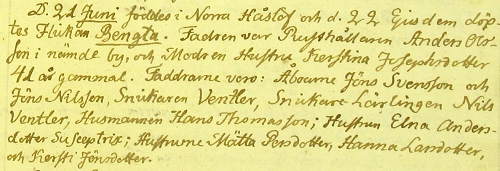 D. 21 Juni föddes i Norra Håslöf och d. 22 Ejusdem döp-
tes Flickan Bengta. Fadren var Rusthållaren Anders Ols-
son i nämde by, och Modren Hustru Kierstina Josephsdotter
41 år gammal. Faddrarne voro: Åboarne Jöns Svensson och
Jöns Nilsson, Snickaren Ventler, Snickare Lärlingen Nils
Ventler, Husmannen Hans Thomasson; Hustrun Elna Anders-
dotter Susceptrix; Hustrurne Mätta Persdotter, Hanna Larsdotter,
och Kiersti Jönsdotter.